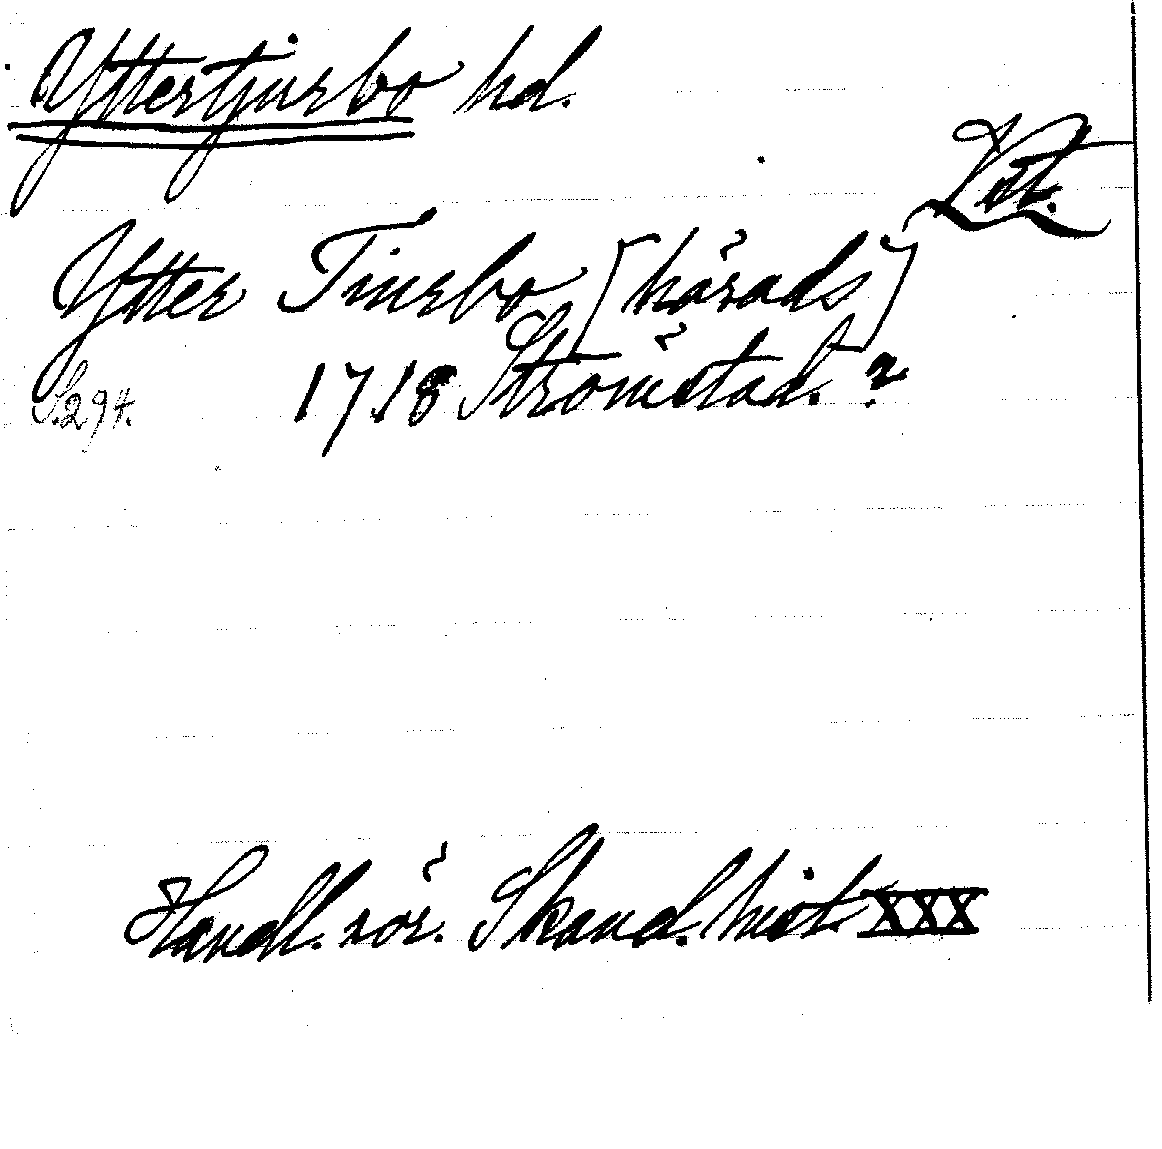 Yttertjurbo hd.
Vstt.
Ytter Tiurbo [härads]
S. 294. 1718 Strömstad. ?
Handl. rör. Skand. hist. XXX